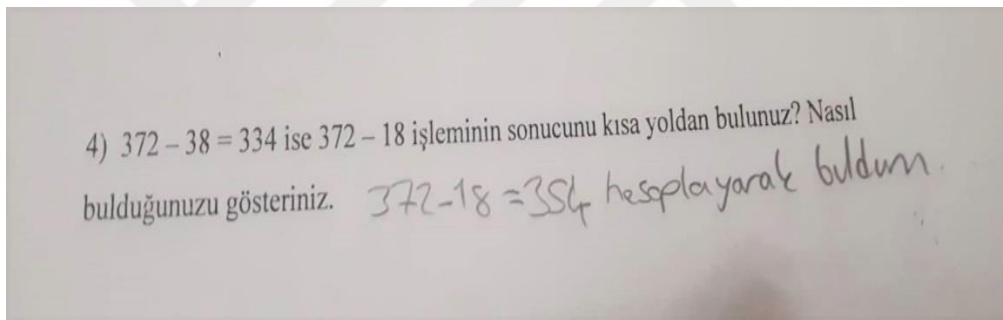 4) 372 – 38 = 334 ise 372 – 18 işleminin sonucunu kısa yoldan bulunuz? Nasıl
bulduğunuzu gösteriniz. 372-18=354 hesaplayarak buldum.